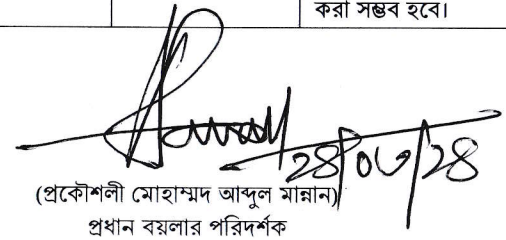 করা সম্ভব হবে।
২৪/০৬/২৪
(প্রকৌশলী মোহাম্মদ আব্দুল মান্নান)
প্রধান বয়লার পরিদর্শক